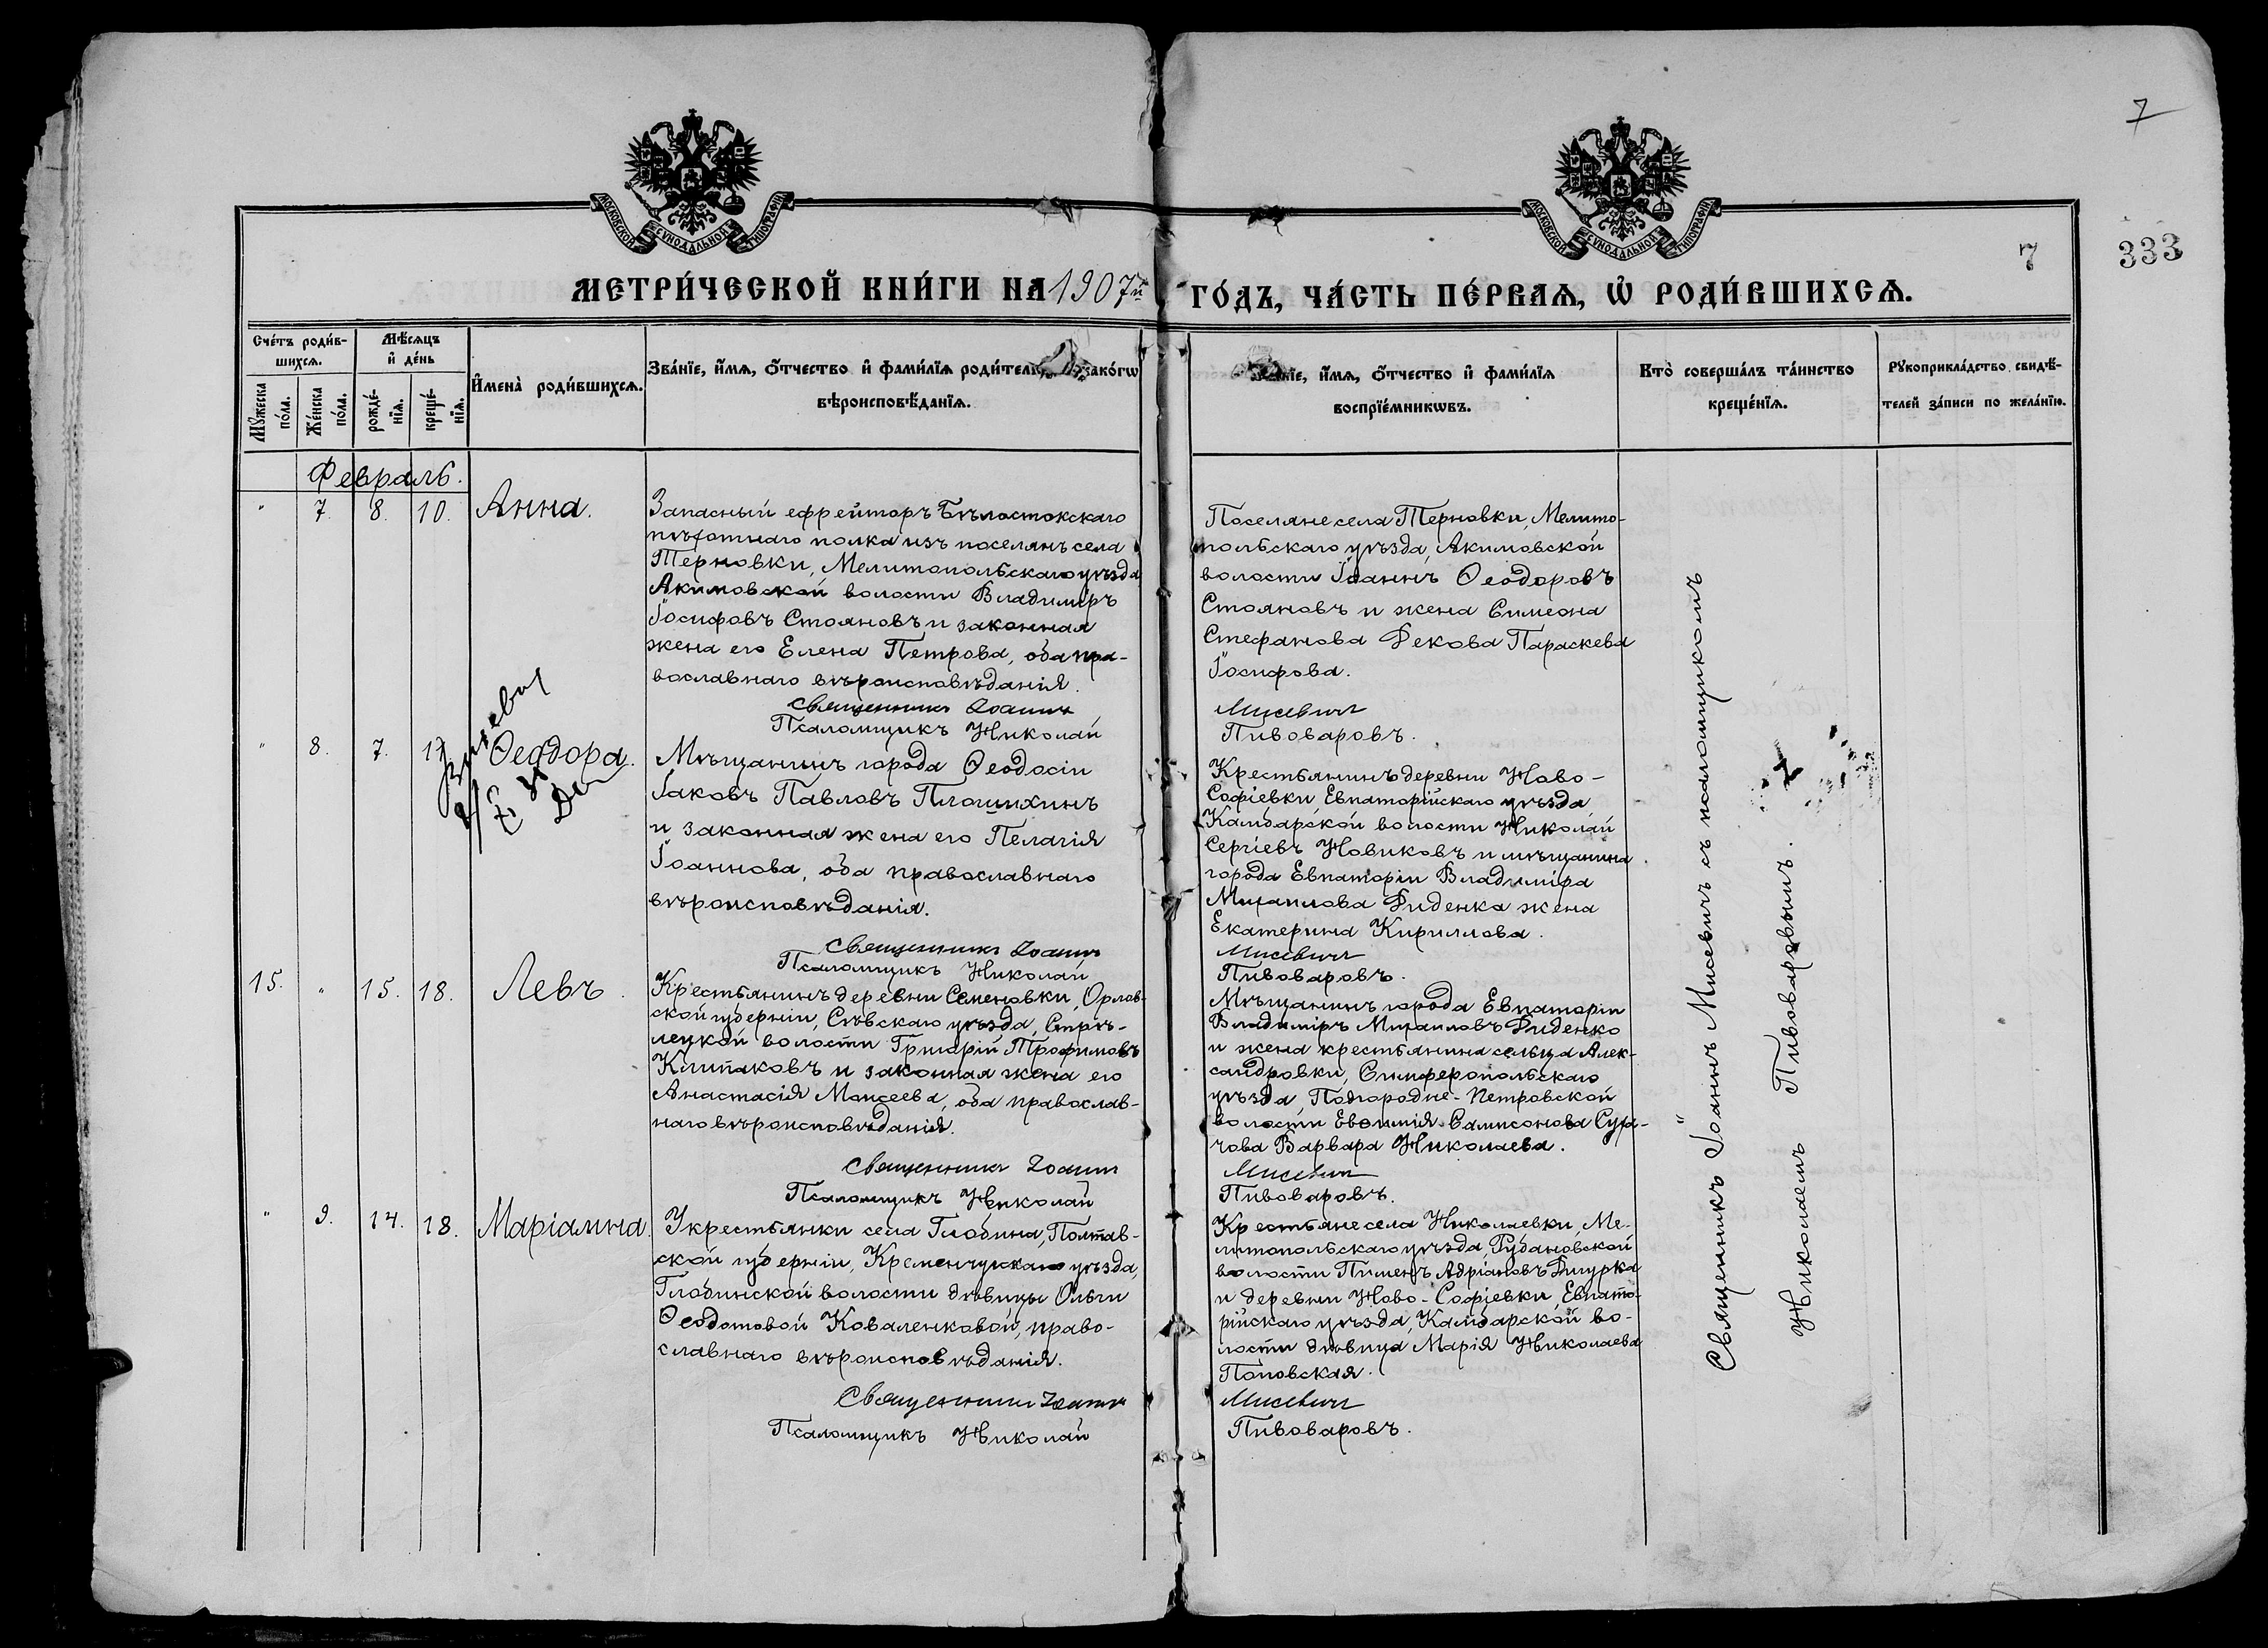 7
МОСКОВСКОЙ СѴНОДАЛЬНОЙ ТИПОГРАФІИ
МОСКОВСКОЙ СѴНОДАЛЬНОЙ ТИПОГРАФІИ
7 333
МЕТРИ́ЧЕСКОЙ КНИ́ГИ НА 1907й ГО́ДЪ, ЧА́СТЬ ПЕ́РВАѦ, Ѡ РОДИ́ВШИХСѦ.
Сче́тъ роди́в-
шихсѧ.
Мꙋ́жеска по́ла.
Же́нска по́ла.
Мѣ́сѧцъ и де́нь
рожде́-нїѧ.
креще́-нїѧ.
И҆мена̀ роди́вшихсѧ.
Зва́нїе, и҆́мѧ, ѻ҆́тчество и҆ фами́лїѧ роди́тел
како́гѡ
вѣроисповѣ́данїѧ.
и҆́мѧ, ѻ҆́тчество и҆ фами́лїѧ
воспрїе́мникѡвъ.
Кто̀ соверша́лъ та́инство
креще́нїѧ.
Рꙋкоприкла́дство свидѣ́-
телей за́писи по жела́нїю.
Февраль.
" 7. 8. 10. Анна.
Запасный ефрейторъ Бѣлостокскаго
пѣхотнаго полка изъ поселянъ села
Терновки, Мелитопольскаго уѣзда
Акимовской волости Владиміръ
Іосифовъ Стояновъ и законная
жена его Елена Петрова, оба пра-
вославнаго вѣроисповѣданія.
Священникъ Іоаннъ
Псаломщикъ Николай
Поселяне села Терновки, Мелито-
польскаго уѣзда, Акимовской
волости Іоаннъ Ѳеодоровъ
Стояновъ и жена Симеона
Стефанова Декова Параскева
Іосифова.
Мисевичъ
Пивоваровъ.
" 8. 7. 17 Ѳеодора.
Мѣщанинъ города Ѳеодосіи
Іаковъ Павловъ Плошихинъ
и законная жена его Пелагія
Іоаннова, оба православнаго
вѣроисповѣданія.
Священникъ Іоаннъ
Псаломщикъ Николай
Крестьянинъ деревни Ново-
Софіевки Евпаторійскаго уѣзда
Камбарской волости Николай
Сергіевъ Новиковъ и мѣщанина
города Евпаторіи Владиміра
Михаилова Диденка жена
Екатерина Кириллова.
Мисевичъ
Пивоваровъ.
15. " 15. 18. Левъ.
Крестьянинъ деревни Семеновки, Орлов-
ской губерніи, Сѣвскаго уѣзда, Стрѣ-
лецкой волости Григорій Трофимовъ
и законная жена его
Анастасія Моисеева, оба православ-
наго вѣроисповѣданія.
Священникъ Іоаннъ
Псаломщикъ Николай
Мѣщанинъ города Евпаторіи
Владиміръ Михаиловъ Диденко
и жена крестьянина сельца Алек-
сандровки, Симферопольскаго
уѣзда, Подгородне-Петровской
волости Евѳимія Сампсонова Суга-
чова Варвара Николаева.
Мисевичъ
Пивоваровъ.
" 9. 14. 18. Маріамна.
У крестьянки села Глобина, Полтав-
ской губерніи, Кременчугскаго уѣзда,
Глобинской волости дѣвицы Ольги
Ѳеодотовой Коваленковой, право-
славнаго вѣроисповѣданія.
Священникъ Іоаннъ
Псаломщикъ Николай
Крестьяне села Николаевки, Ме-
литопольскаго уѣзда, Рубановской
волости Пименъ Адріановъ Дигурка
и деревни Ново-Софіевки, Евпато-
рійскаго уѣзда, Камбарской во-
лости дѣвица Марія Николаева
Поповская.
Мисевичъ
Пивоваровъ.
Священникъ Іоаннъ Мисевичъ съ псаломщикомъ
Николаемъ Пивоваровымъ.